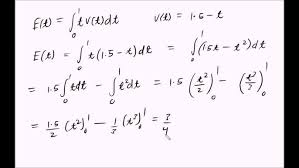 E(t) = ∫₀¹ t v(t) dt    v(t) = 1.5 - t
E(t) = ∫₀¹ t (1.5 - t) dt = ∫₀¹ (1.5t - t²) dt
= 1.5 ∫₀¹ t dt - ∫₀¹ t² dt = 1.5 (t²/2)₀¹ - (t³/3)₀¹
= 1.5/2 (t²)₀¹ - 1/3 (t³)₀¹ = 3/4